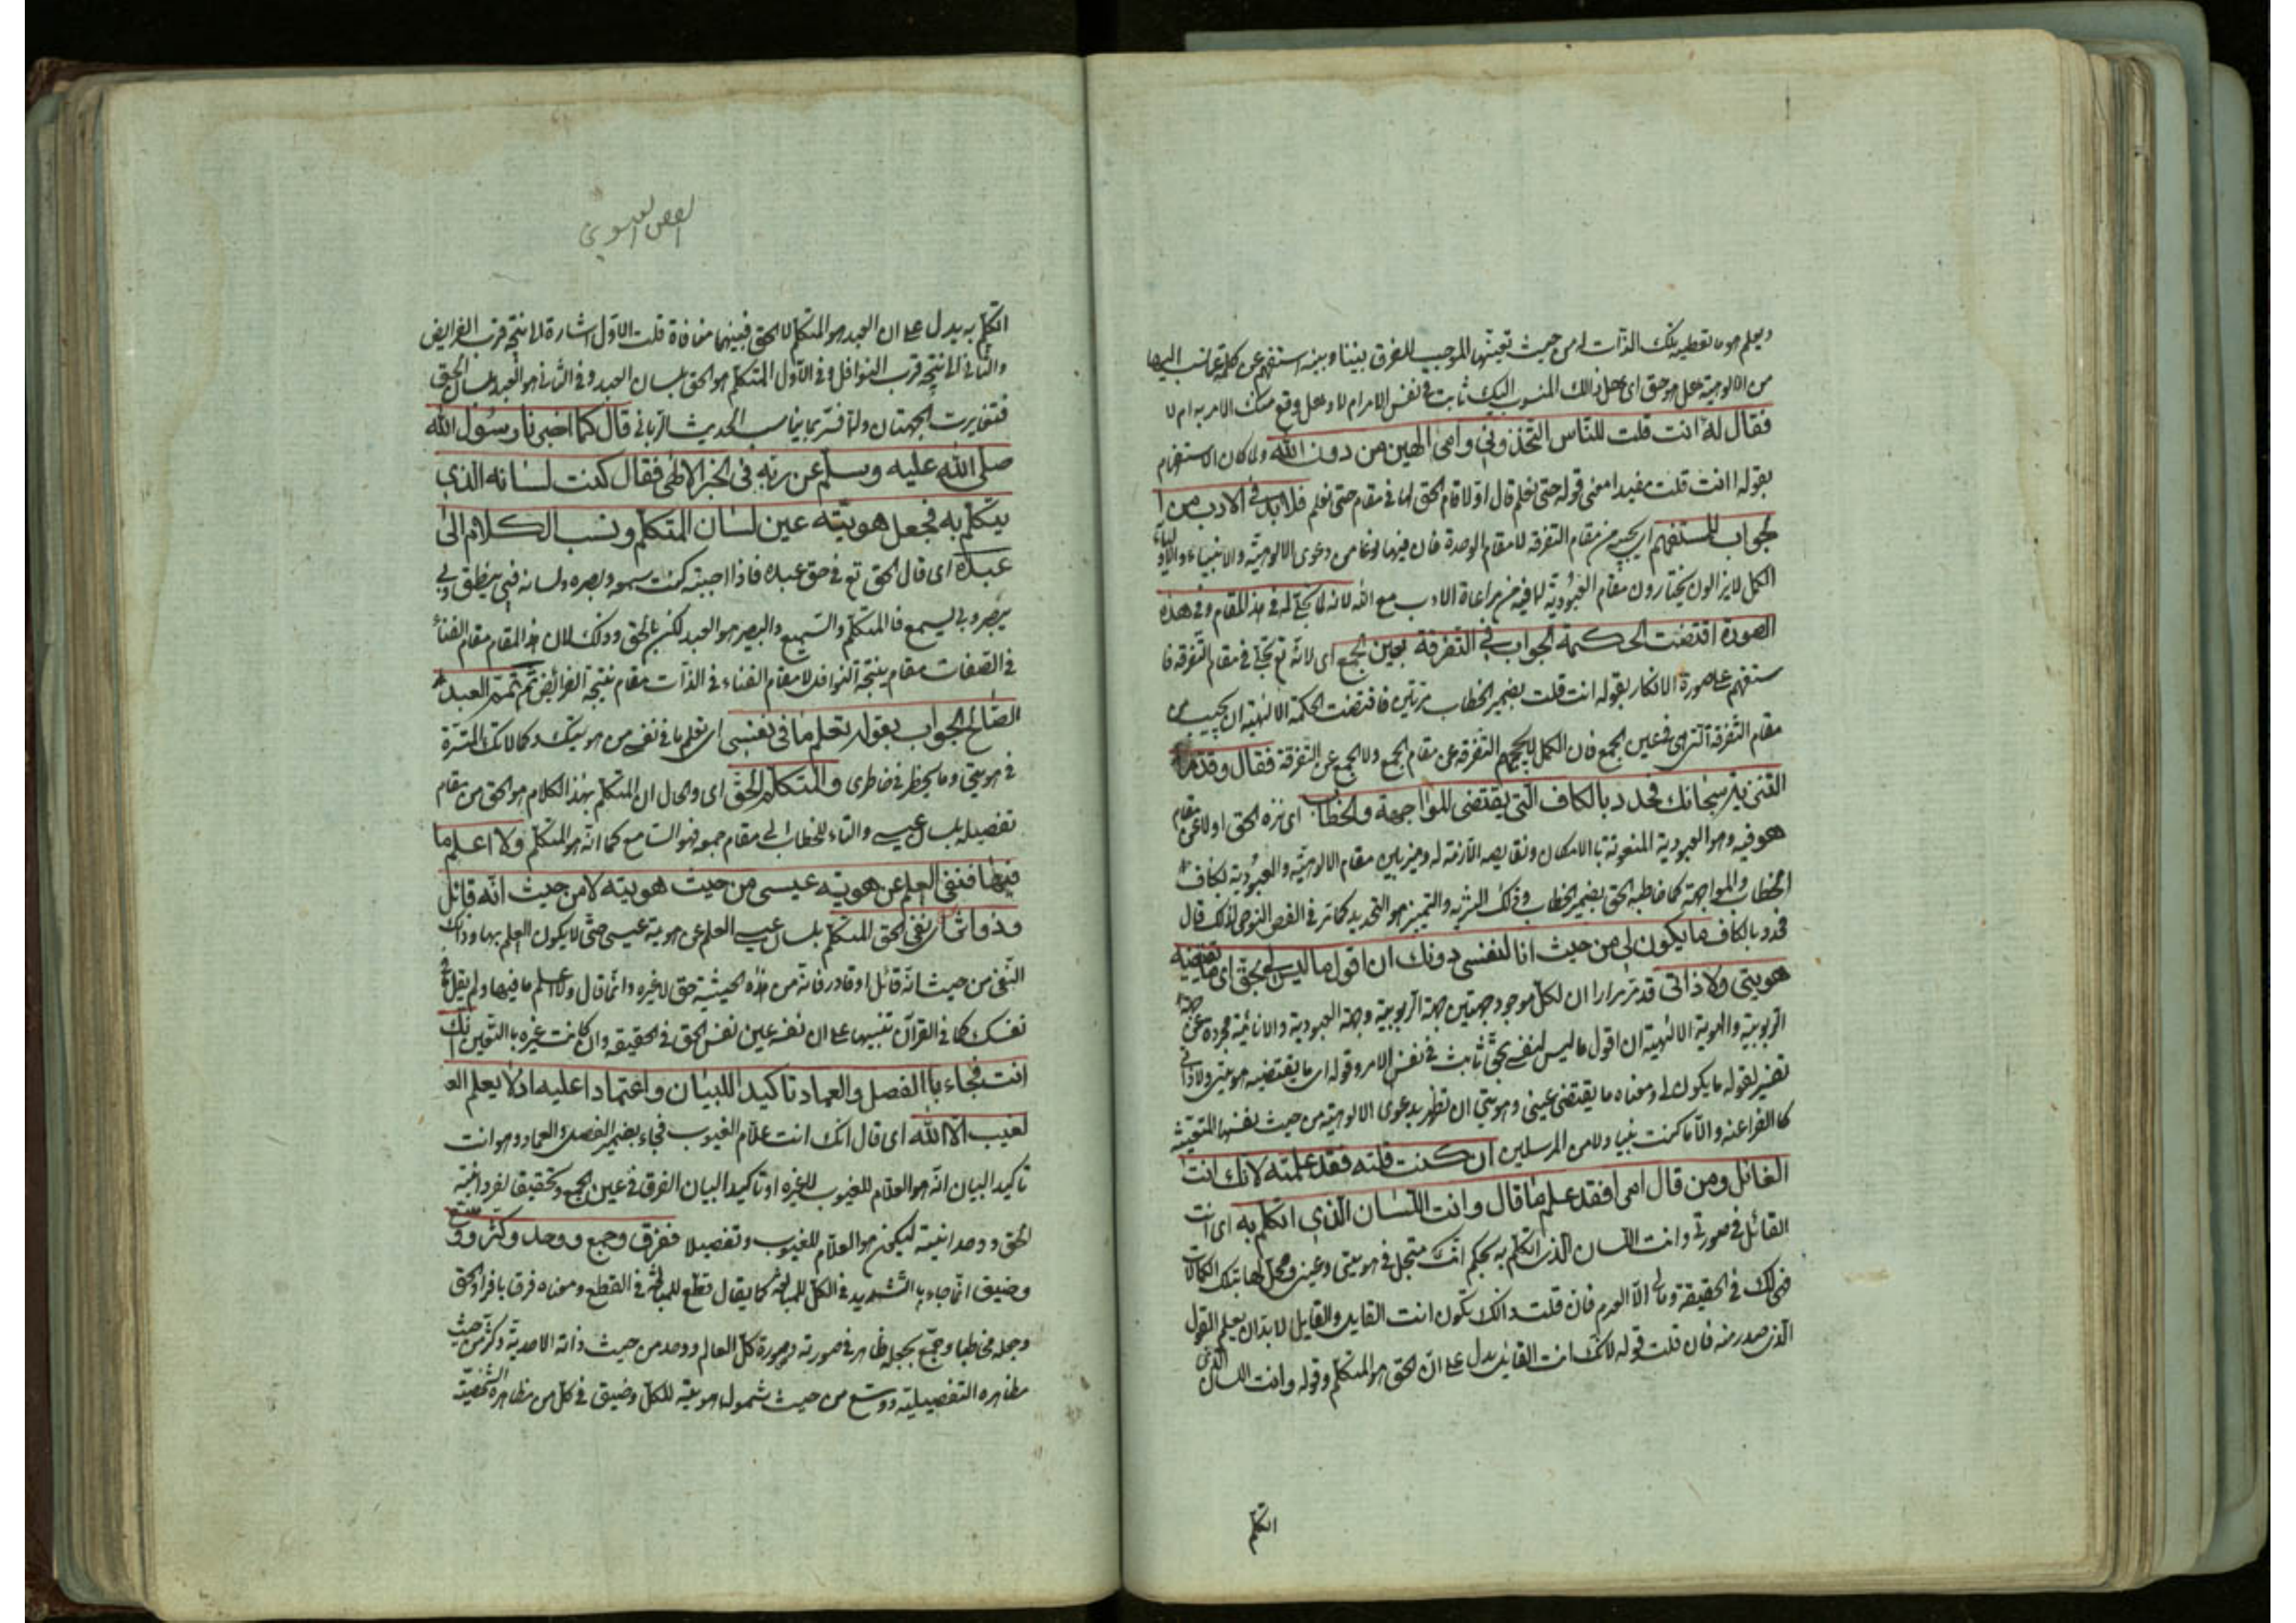 ويعلم هو ما تعطيه تلك الذات من حيث تعينها الموجب للفرق بيننا وبينه استفهم عن كلمة عما نسب اليها
من الالوهية هل هو حق اى هل ذلك المنسوب اليك ثابت فى نفس الامر ام لا وهل وقع منك الامر به ام لا
فقال له اانت قلت للناس اتخذونى وامى الهين من دون الله ولما كان الاستفهام
بقوله اانت قلت مفيدا معنى قوله حتى نعلم قال اولا قام الحق لها فى مقام حتى نعلم فلا بد فى الادب من
لجواب للمستفهم اى يجيبه من مقام التفرقة لا مقام الوحدة فان فيها نوعا من دعوى الالوهية والانبياء والاولياء
الكمل لا يزالون يختارون مقام العبودية لما فيه من مراعاة الادب مع الله لانه لما تجلى له فى هذا المقام وفى هذه
الصورة اقتضت الحكمة الجواب فى التفرقة بعين الجمع اى لانه تع تجلى فى مقام التفرقة فا
ستفهم على صورة الانكار بقوله انت قلت بضمير الخطاب مرتين فاقتضت الحكمة الالهية ان يجيب من
مقام التفرقة التى هى فى عين الجمع فان الكمل لا يحجبهم التفرقة عن مقام الجمع ولا الجمع عن التفرقة فقال وقدم
التنزيه سبحانك فحدد بالكاف التى يقتضى للمواجهة والخطاب اى نزه الحق اولا عن مقام
هو فيه وهو العبودية المنعوتة بالامكان ونقايصه اللازمة له وميز بين مقام الالوهية والعبودية بكاف
الخطاب والمواجهة كما خاطبه الحق بضمير الخطاب وذلك التنزيه والتمييز هو التحديد كما مر فى الفص النوحى لذلك قال
فحدد بالكاف ما يكون لى من حيث انا لنفسى دونك ان اقول ما ليس لى بحق اى ما تقتضيه
هويتى ولا ذاتى قد مر مرارا ان لكل موجود جهتين جهة الربوبية وجهة العبودية والانائية مجردة عن جهة
الربوبية والهوية الالهية ان اقول ما ليس لنفسى بحق ثابت فى نفس الامر وقوله اى ما يقتضيه هويتى ولا ذاتى
تفسير لقوله ما يكون لى ومعناه ما يقتضى عينى وهويتى ان تظهر بدعوى الالوهية من حيث نفسها المتعينة
كالفراعنه والا ما كنت نبيا ولا من المرسلين ان كنت قلته فقد علمته لانك انت
القائل ومن قال امرا فقد علم ما قال وانت اللسان الذى اتكلم به اى انت
القائل فى صورتى وانت اللسان الذى اتكلم به بحكم انك متجل فى هويتى وعينى ومحل لها بتلك الكمالات
فهى لك فى الحقيقة وما لى الا العدم فان قلت ذلك تكون انت القايل والقايل لا بد ان يعلم القول
الذى صدر منه فان قلت قوله لانك انت القائل يدل على ان الحق هو المتكلم وقوله وانت اللسان الذى
اتكلم
الفص العيسوى
اتكلم به يدل على ان العبد هو المتكلم لا الحق فبينهما منافاة قلت الاول اشارة الى نتيجة قرب الفرايض
والثانى الى نتيجة قرب النوافل وفى الاول المتكلم هو الحق بلسان العبد وفى الثانى هو العبد بلسان الحق
فتغايرت الجهتان ولما فسر بما يناسب الحديث الربانى قال كما اخبرنا رسول الله
صلى الله عليه وسلم عن ربه فى الخبر الالهى فقال كنت لسانه الذى
يتكلم به فجعل هويته عين لسان المتكلم ونسب الكلام الى
عبده اى قال الحق تع فى حق عبده فاذا احببته كنت سمعه وبصره ولسانه فبى ينطق وبى
يبصر وبى يسمع فالمتكلم والسميع والبصير هو العبد لكن بالحق وذلك لان هذا المقام مقام الفناء
فى الصفات مقام نتيجة النوافل لا مقام الفناء فى الذات مقام نتيجة الفرائض ثم تمم العبد
الصالح الجواب بقوله تعلم ما فى نفسى اى تعلم ما فى نفسى من هويتك وكمالاتك المستترة
فى هويتى وما يخطر فى خاطرى والمتكلم الحق اى والحال ان المتكلم بهذا الكلام هو الحق من مقام
تفصيله بلسان عيسى والتاء للخطاب الى مقام جمعه فهو السامع كما انه هو المتكلم ولا اعلم ما
فيها فنفى العلم عن هوية عيسى من حيث هويته لا من حيث انه قائل
وذو اثر اى نفى الحق المتكلم بلسان عيسى العلم عن هوية عيسى حتى لا يكون العلم بها وذلك
النفى من حيث انه قائل او قادر فانه من هذه الحيثية حق لا غيره وانما قال ولا اعلم ما فيها ولم يقل ما فى
نفسك كما فى القرآن تنبيها على ان نفسه عين نفس الحق فى الحقيقه وان كانت غيره بالتعين انك
انت فجاء بالفصل والعماد تاكيدا للبيان واعتمادا عليه اذ لا يعلم الع
لغيب الا الله اى قال انك انت علام الغيوب فجاء بضمير الفصل والعماد وهو انت
تاكيد البيان انه هو العلام للغيوب لا غيره او تاكيد البيان الفرق فى عين الجمع وتحقيقا لفردانية
الحق ووحدانيته ليكون هو العلام للغيوب وتفصيلا ففرق وجمع ووحد وكثر ووسع
وضيق انما جاء بالتشديد فى الكل للمبالغة كما يقال قطع للمبالغة فى القطع ومعناه فرق بافراد الحق
وجعله مخاطبا وجمع بجعله ظاهر فى صورته وصورة كل العالم ووحد من حيث ذاته الاحدية وكثر من حيث
مظاهره التفصيلية ووسع من حيث شمول هويته للكل وضيق فى كل من مظاهره الشخصية